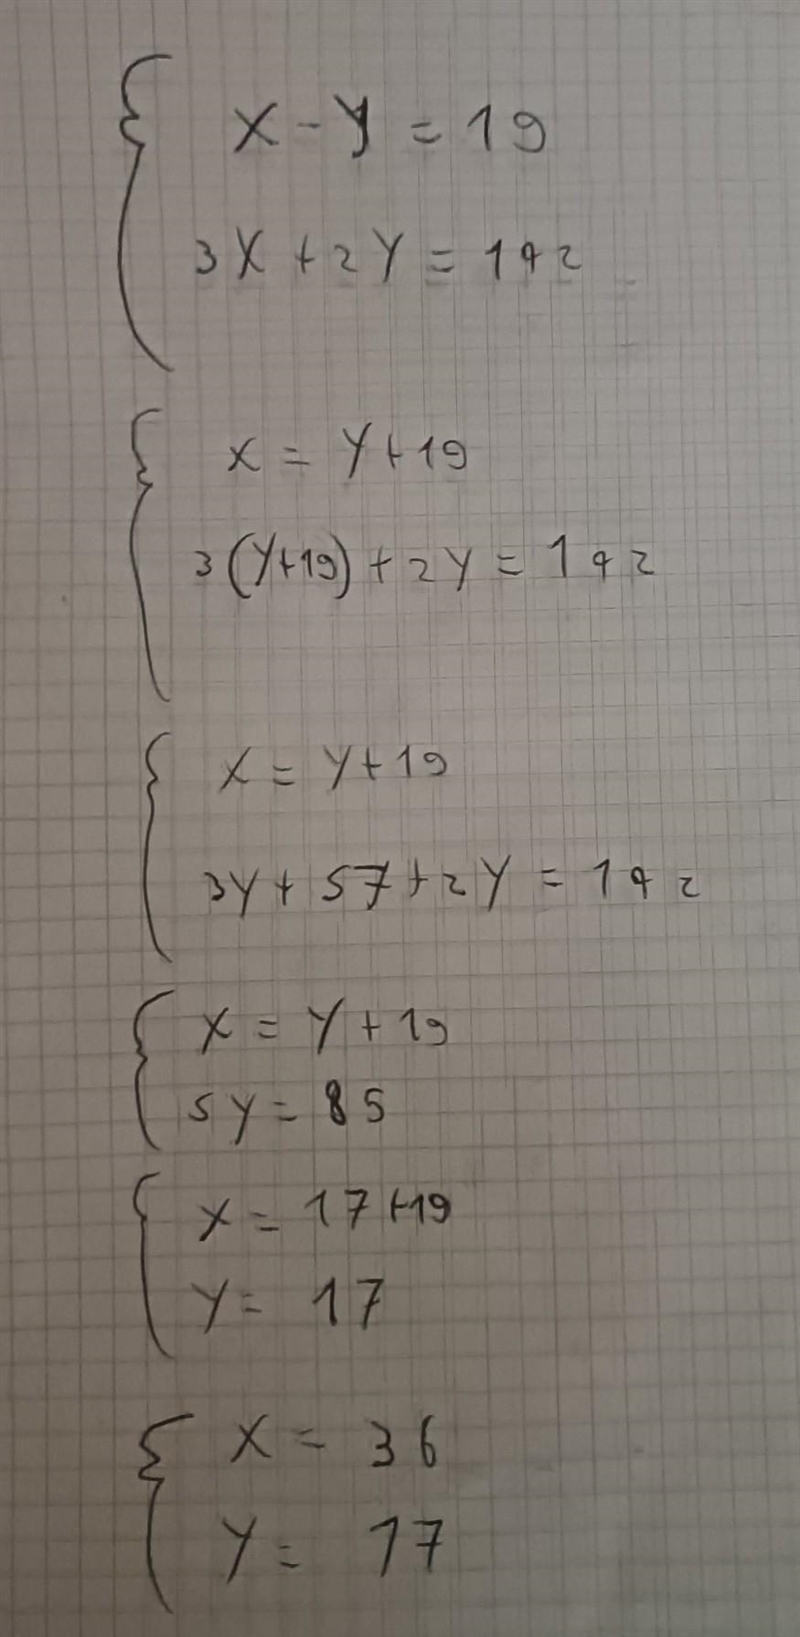 x - y = 19
3x + 2y = 142
x = y + 19
3(y+19) + 2y = 142
x = y + 19
3y + 57 + 2y = 142
x = y + 19
5y = 85
x = 17 + 19
y = 17
x = 36
y = 17